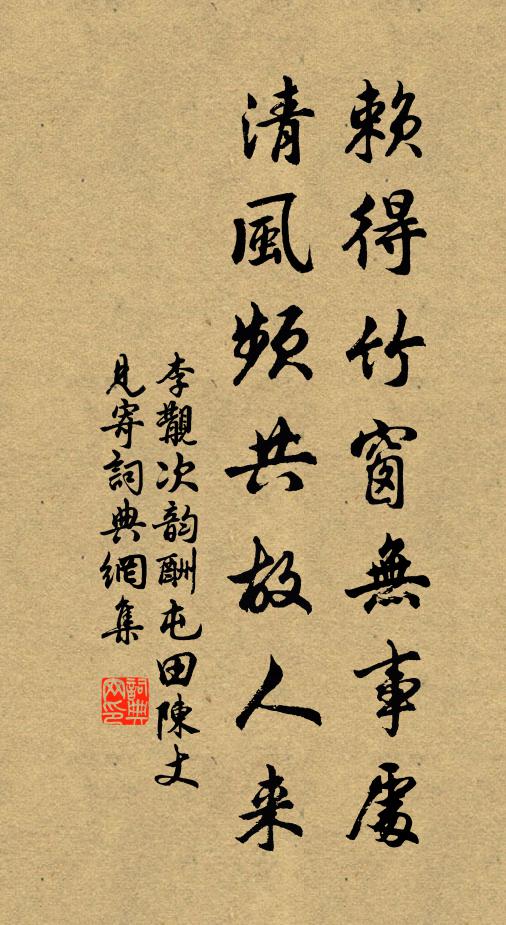 賴得竹窗無事處
清風頻共故人来
李覯次韵酬屯田陳丈
見寄詞典網集
詞典
网印